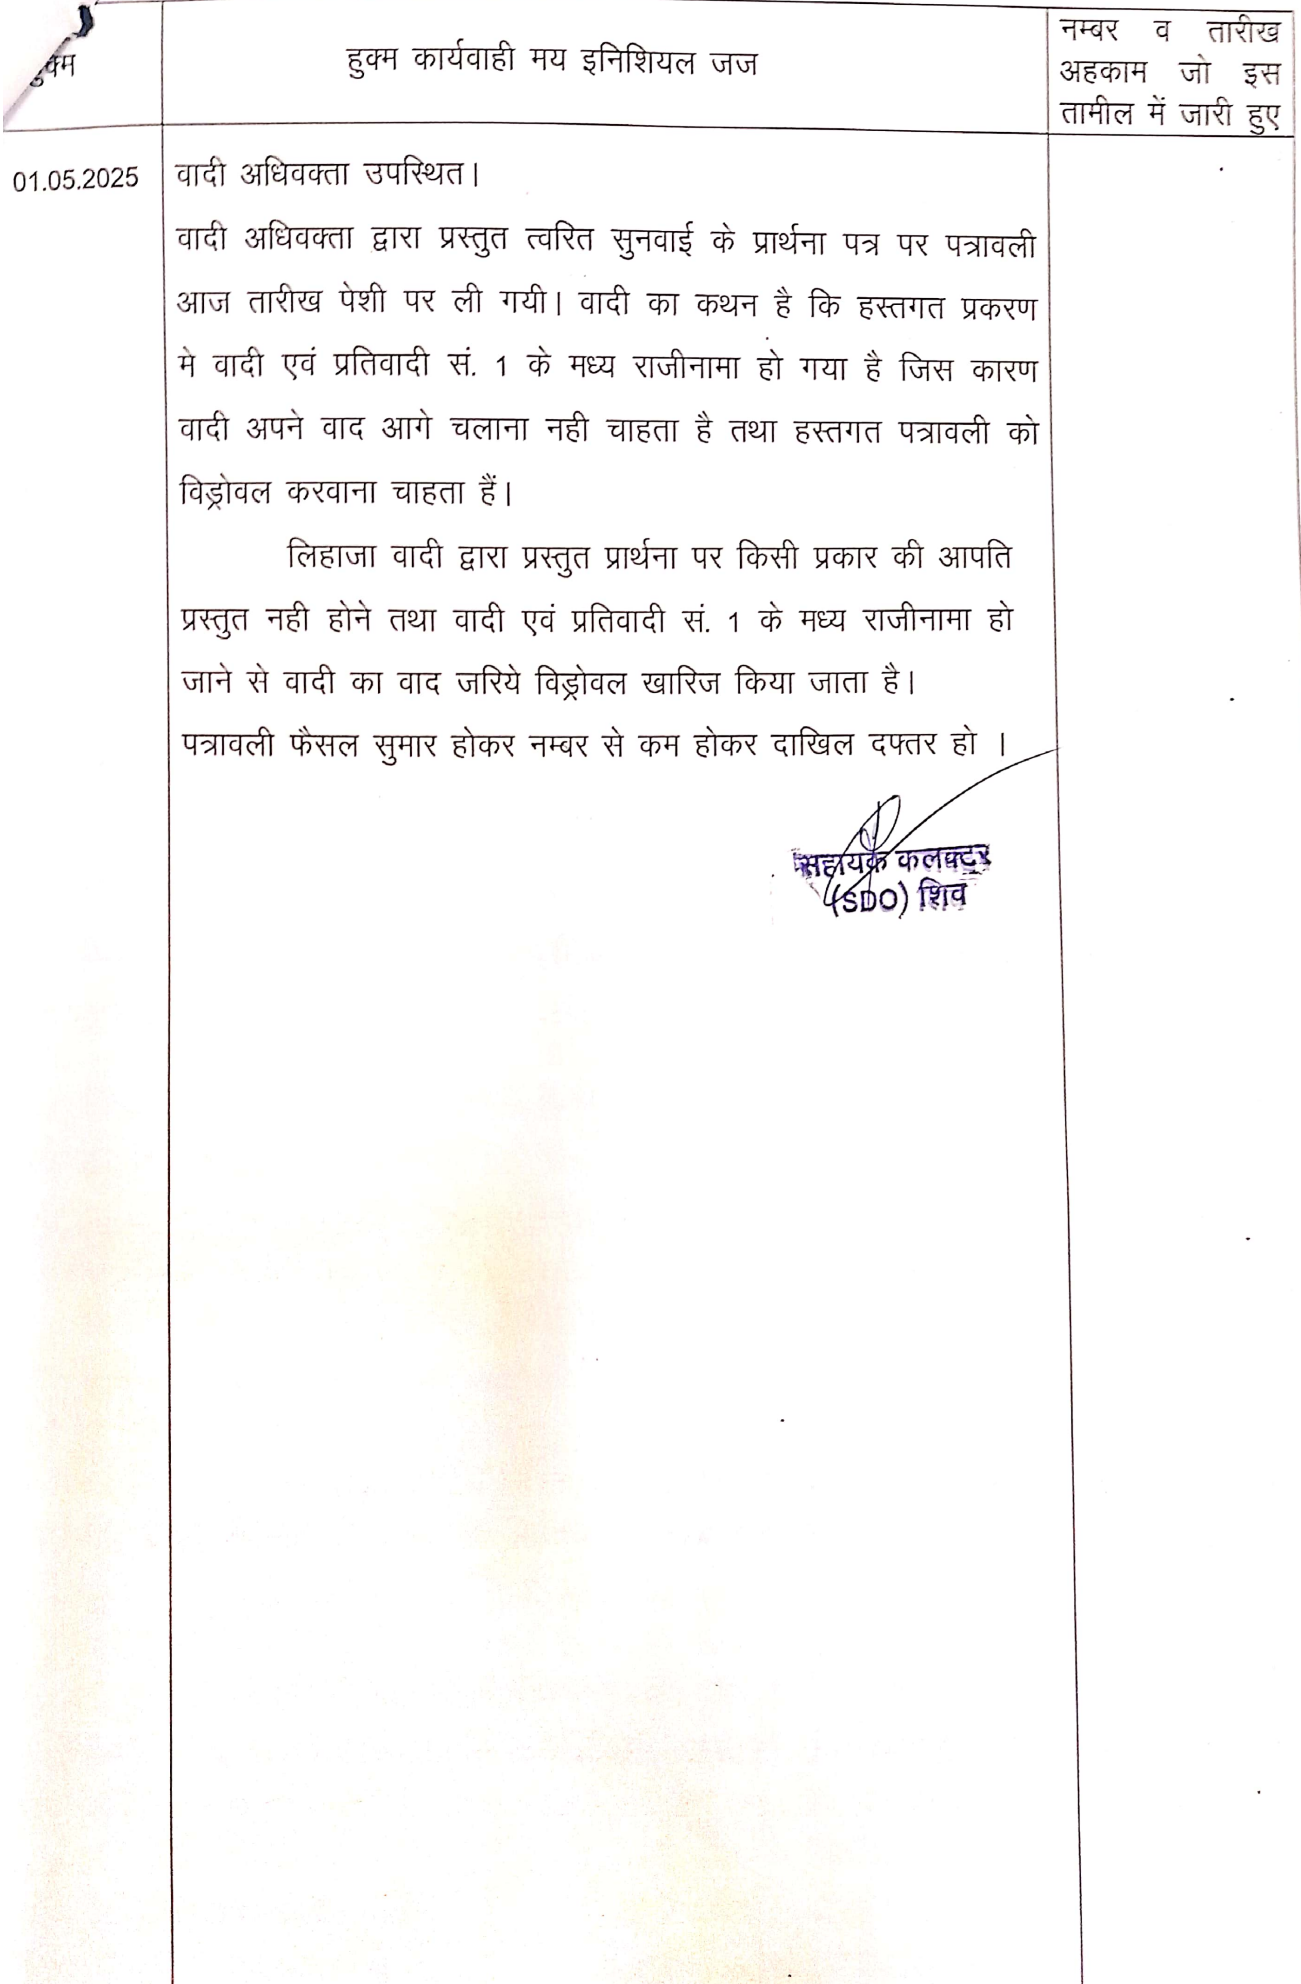 हुक्म
हुक्म कार्यवाही मय इनिशियल जज
नम्बर व तारीख
अहकाम जो इस
तामील में जारी हुए
01.05.2025
वादी अधिवक्ता उपस्थित।
वादी अधिवक्ता द्वारा प्रस्तुत त्वरित सुनवाई के प्रार्थना पत्र पर पत्रावली
आज तारीख पेशी पर ली गयी। वादी का कथन है कि हस्तगत प्रकरण
मे वादी एवं प्रतिवादी सं. 1 के मध्य राजीनामा हो गया है जिस कारण
वादी अपने वाद आगे चलाना नही चाहता है तथा हस्तगत पत्रावली को
विड्रोवल करवाना चाहता हैं।
लिहाजा वादी द्वारा प्रस्तुत प्रार्थना पर किसी प्रकार की आपति
प्रस्तुत नही होने तथा वादी एवं प्रतिवादी सं. 1 के मध्य राजीनामा हो
जाने से वादी का वाद जरिये विड्रोवल खारिज किया जाता है।
पत्रावली फैसल सुमार होकर नम्बर से कम होकर दाखिल दफ्तर हो ।
सहायक कलक्टर
(SDO) शिव